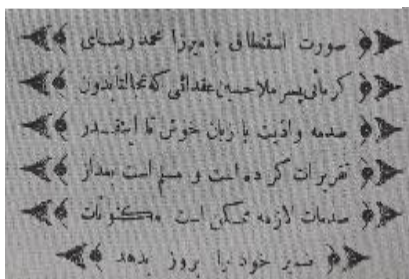 صورت استنطاق با میرزا محمد رضای
کرمانی پسر ملا حسین عقدائی که عجالتاً بدون
صدمه و اذیت با زبان خوش تا اینقدر
تقریرات کرده است و مسلم است بعد از
صدمات لازمه ممکن است مکنونات
ضمیر خود را بروز بدهد